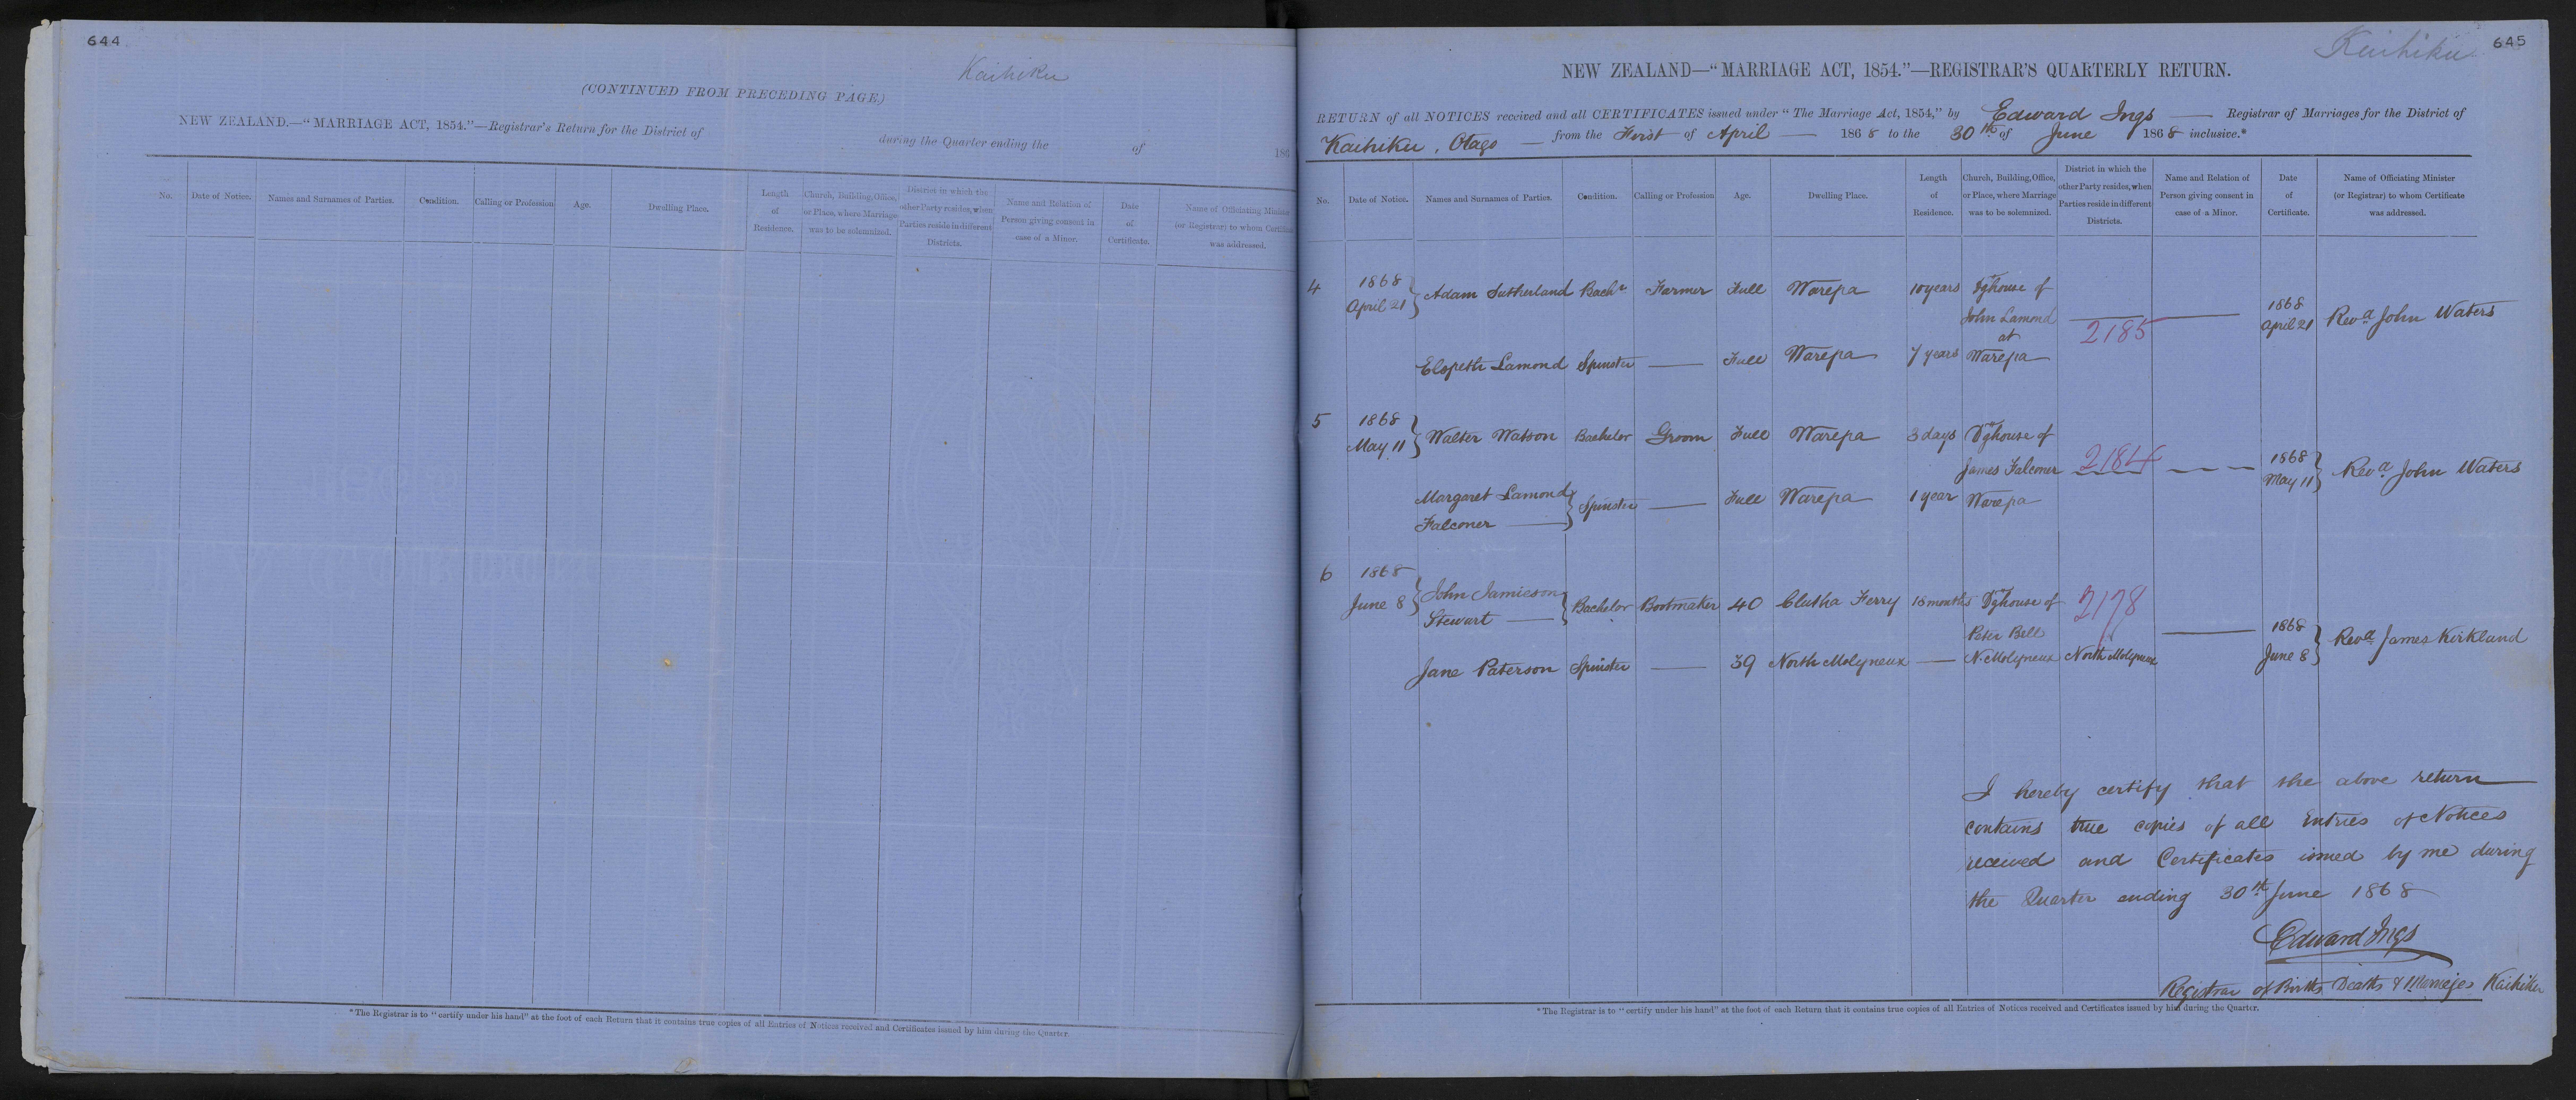 644
Kaihiku
(CONTINUED FROM PRECEDING PAGE)
NEW ZEALAND.—"MARRIAGE ACT, 1854."—Registrar's Return for the District of during the Quarter ending the of 186
No. Date of Notice. Names and Surnames of Parties. Condition. Calling or Profession Age. Dwelling Place. Length of Residence. Church, Building, Office, or Place, where Marriage was to be solemnized. District in which the other Party resides, when Parties reside in different Districts. Name and Relation of Person giving consent in case of a Minor. Date of Certificate. Name of Officiating Minister (or Registrar) to whom Certificate was addressed.
*The Registrar is to "certify under his hand" at the foot of each Return that it contains true copies of all Entries of Notices received and Certificates issued by him during the Quarter.
Kaihiku
645
NEW ZEALAND—"MARRIAGE ACT, 1854."—REGISTRAR'S QUARTERLY RETURN.
RETURN of all NOTICES received and all CERTIFICATES issued under "The Marriage Act, 1854," by Edward Ings — Registrar of Marriages for the District of
Kaihiku, Otago — from the First of April — 1868 to the 30th of June 1868 inclusive.*
No. Date of Notice. Names and Surnames of Parties. Condition. Calling or Profession Age. Dwelling Place. Length of Residence. Church, Building, Office, or Place, where Marriage was to be solemnized. District in which the other Party resides, when Parties reside in different Districts. Name and Relation of Person giving consent in case of a Minor. Date of Certificate. Name of Officiating Minister (or Registrar) to whom Certificate was addressed.
4 1868 April 21 } Adam Sutherland Bachr Farmer Full Warepa 10 years Dghouse of John Lamond at Warepa — 2185 — 1868 April 21 Revd John Waters
Elspeth Lamond Spinster — Full Warepa 7 years
5 1868 May 11 } Walter Watson Bachelor Groom Full Warepa 3 days Dghouse of James Falconer Warepa 2184 — — — 1868 May 11 } Revd John Waters
Margaret Lamond Falconer — } Spinster — Full Warepa 1 year
6 1868 June 8 } John Jamieson Stewart — } Bachelor Bootmaker 40 Clutha Ferry 18 months Dghouse of Peter Bell N. Molyneux 2178 — 1868 June 8 } Revd James Kirkland
Jane Paterson Spinster — 39 North Molyneux — North Molyneux
I hereby certify that the above return
contains true copies of all Entries of Notices
received and Certificates issued by me during
the Quarter ending 30th June 1868
Edward Ings
Registrar of Births Deaths & Marriages Kaihiku
*The Registrar is to "certify under his hand" at the foot of each Return that it contains true copies of all Entries of Notices received and Certificates issued by him during the Quarter.